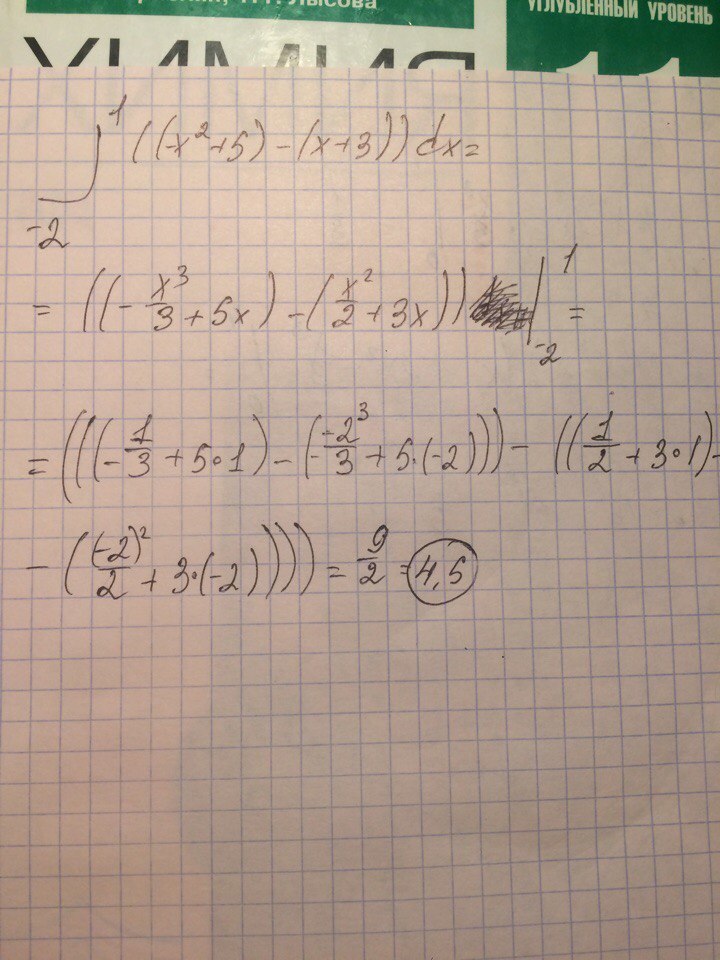 Лысова
УГЛУБЛЕННЫЙ УРОВЕНЬ
ХИМИЯ
11
∫₋₂¹ ((-x²+5)-(x+3))dx=
= ((-x³/3+5x)-(x²/2+3x))|₋₂¹ =
= (((-1/3+5·1)-(-(-2³)/3+5·(-2)))-((1/2+3·1)-
-((-2)²/2+3·(-2))))) = 9/2 = 4,5